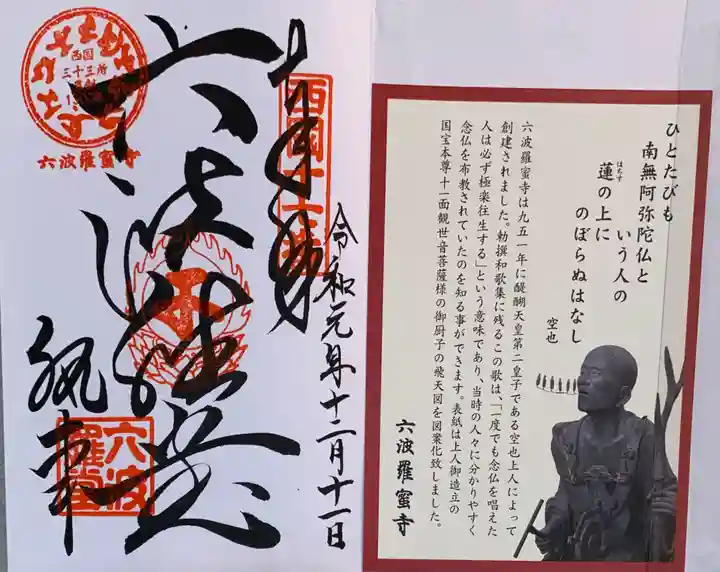 奉拝
西国十七番
令和元年十二月十一日
六波羅蜜寺
六波羅堂
西国
三十三所
六波羅蜜寺
ひとたびも
南無阿弥陀仏と
いう人の
蓮の上に
はちす
のぼらぬはなし
空也
六波羅蜜寺は九五一年に醍醐天皇第二皇子である空也上人によって
創建されました。勅撰和歌集に残るこの歌は、「一度でも念仏を唱えた
人は必ず極楽往生する」という意味であり、当時の人々に分かりやすく
念仏を布教されていたのを知る事ができます。表紙は上人御造立の
国宝本尊十一面観世音菩薩様の御厨子の飛天図を図案化致しました。
六波羅蜜寺